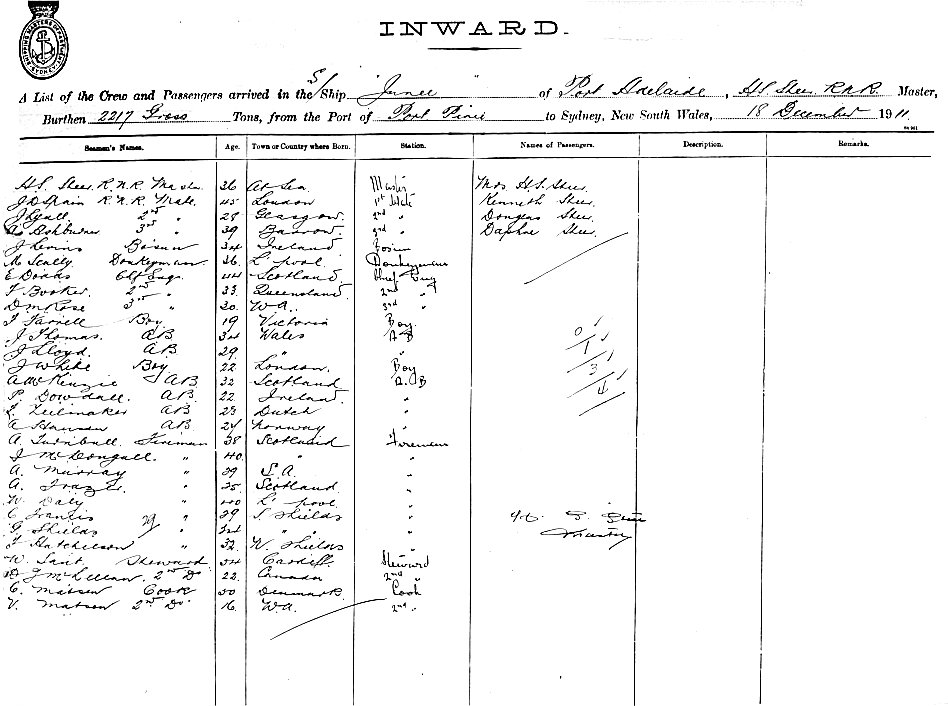 SHIPPING MASTERS DEPARTMENT SYDNEY
INWARD.
A List of the Crew and Passengers arrived in the S/ Ship "Junee" of Port Adelaide, H.S. Shee R.N.R. Master,
Burthen 2217 Gross Tons, from the Port of Port Pirie to Sydney, New South Wales, 18 December 1911
Seamen's Names. Age. Town or Country where Born. Station. Names of Passengers. Description. Remarks.
H.S. Shee R.N.R. Master 36 At Sea Master Mrs H.S. Shee
R.N.R. Mate 45 London 1st Mate Kenneth Shee
J Lyall 2nd " 28 Glasgow 2nd " Douglas Shee
Ashburner 3rd " 39 Barrow 3rd " Daphne Shee
J Bosun 34 Ireland Bosun
M Scally Donkeyman 36 L'pool Donkeyman
E Engr 44 Scotland Chief Eng
F Booker 2nd " 33 Queensland 2nd "
D McRose 3rd " 30 W.A. 3rd "
Farrell Boy 19 Victoria Boy
J Thomas AB 34 Wales AB
J Lloyd AB 29 " "
J White Boy 22 London Boy
A McKenzie AB 32 Scotland A.B
P. Dowdall AB 22 Ireland "
AB 23 Dutch "
A Hansen AB 24 Norway "
A. Turnbull Fireman 38 Scotland Fireman
J McDougall " 40 " "
A. Murray " 39 S.A. "
A. Frazer " 25 Scotland "
W. Daly " 40 L'pool "
C Francis " 39 S Shields "
G. Shields " "
F Hutchieson " 32 W. Shields "
W. Steward 54 Cardiff Steward
J McLellan 2nd Do 22 Canada 2nd "
C. Matsen Cook 50 Denmark Cook
V. Matsen 2nd Do 16 W.A. 2nd "
29
0
1
3
4